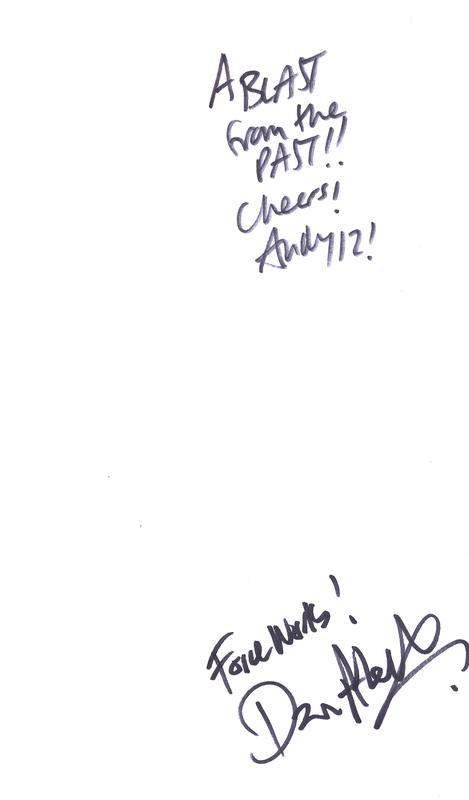 A BLAST
from the
PAST!!
Cheers!
Andy 12!
Force Works!
Dan Abnett